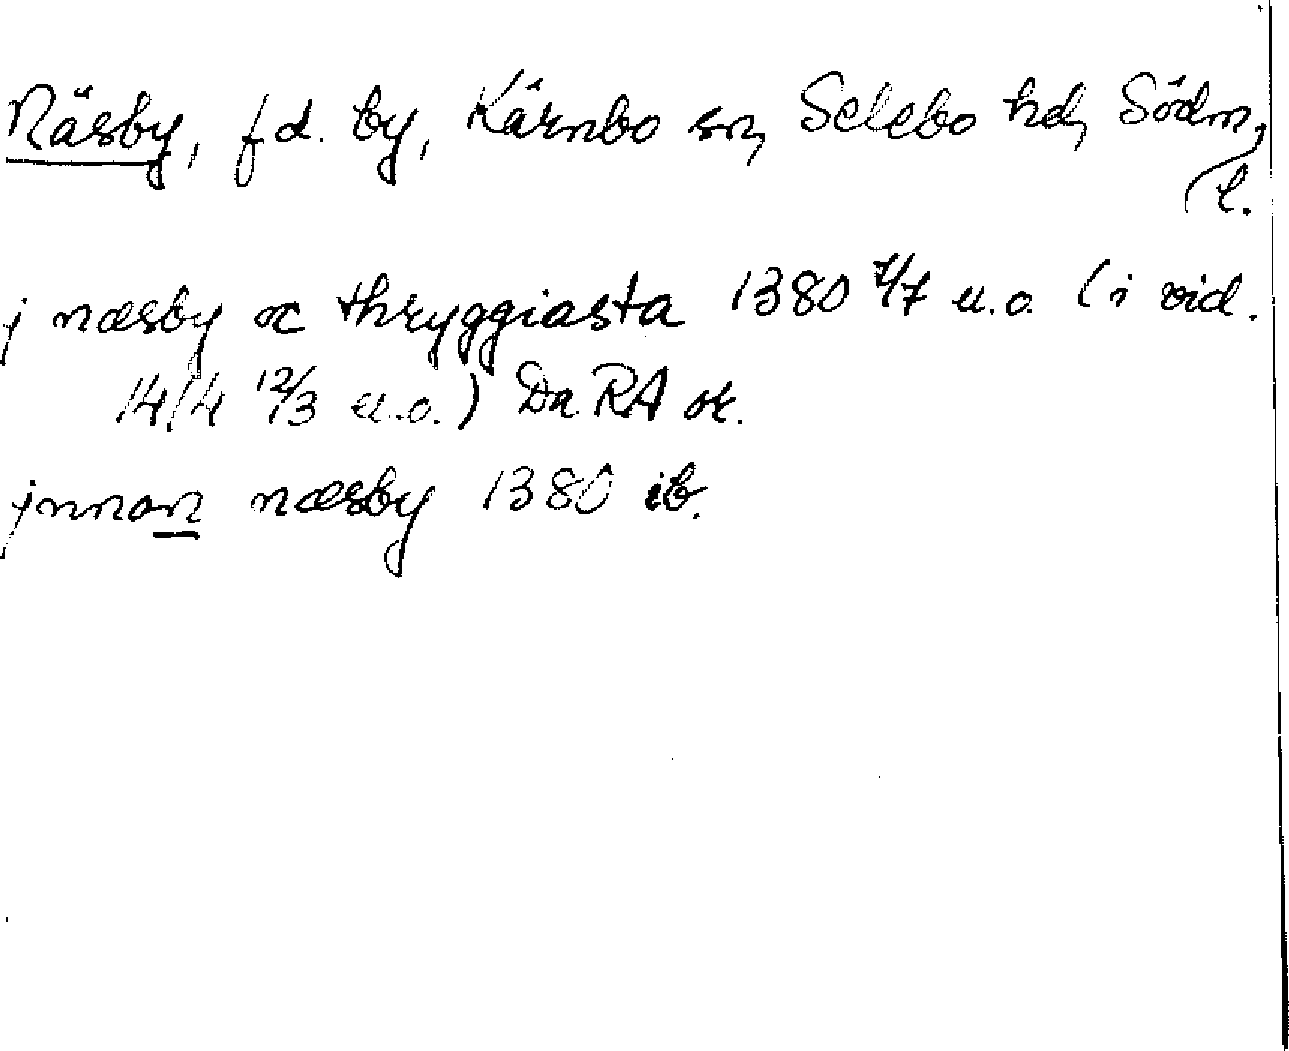 Näsby, fd. by, Kärnbo sn, Selebo hd, Södm,
l.
j næsby oc thryggiasta 1380 7/7 u.o. (i vid.
1414 12/3 u.o.) Da RA or.
jnnan næsby 1380 ib.